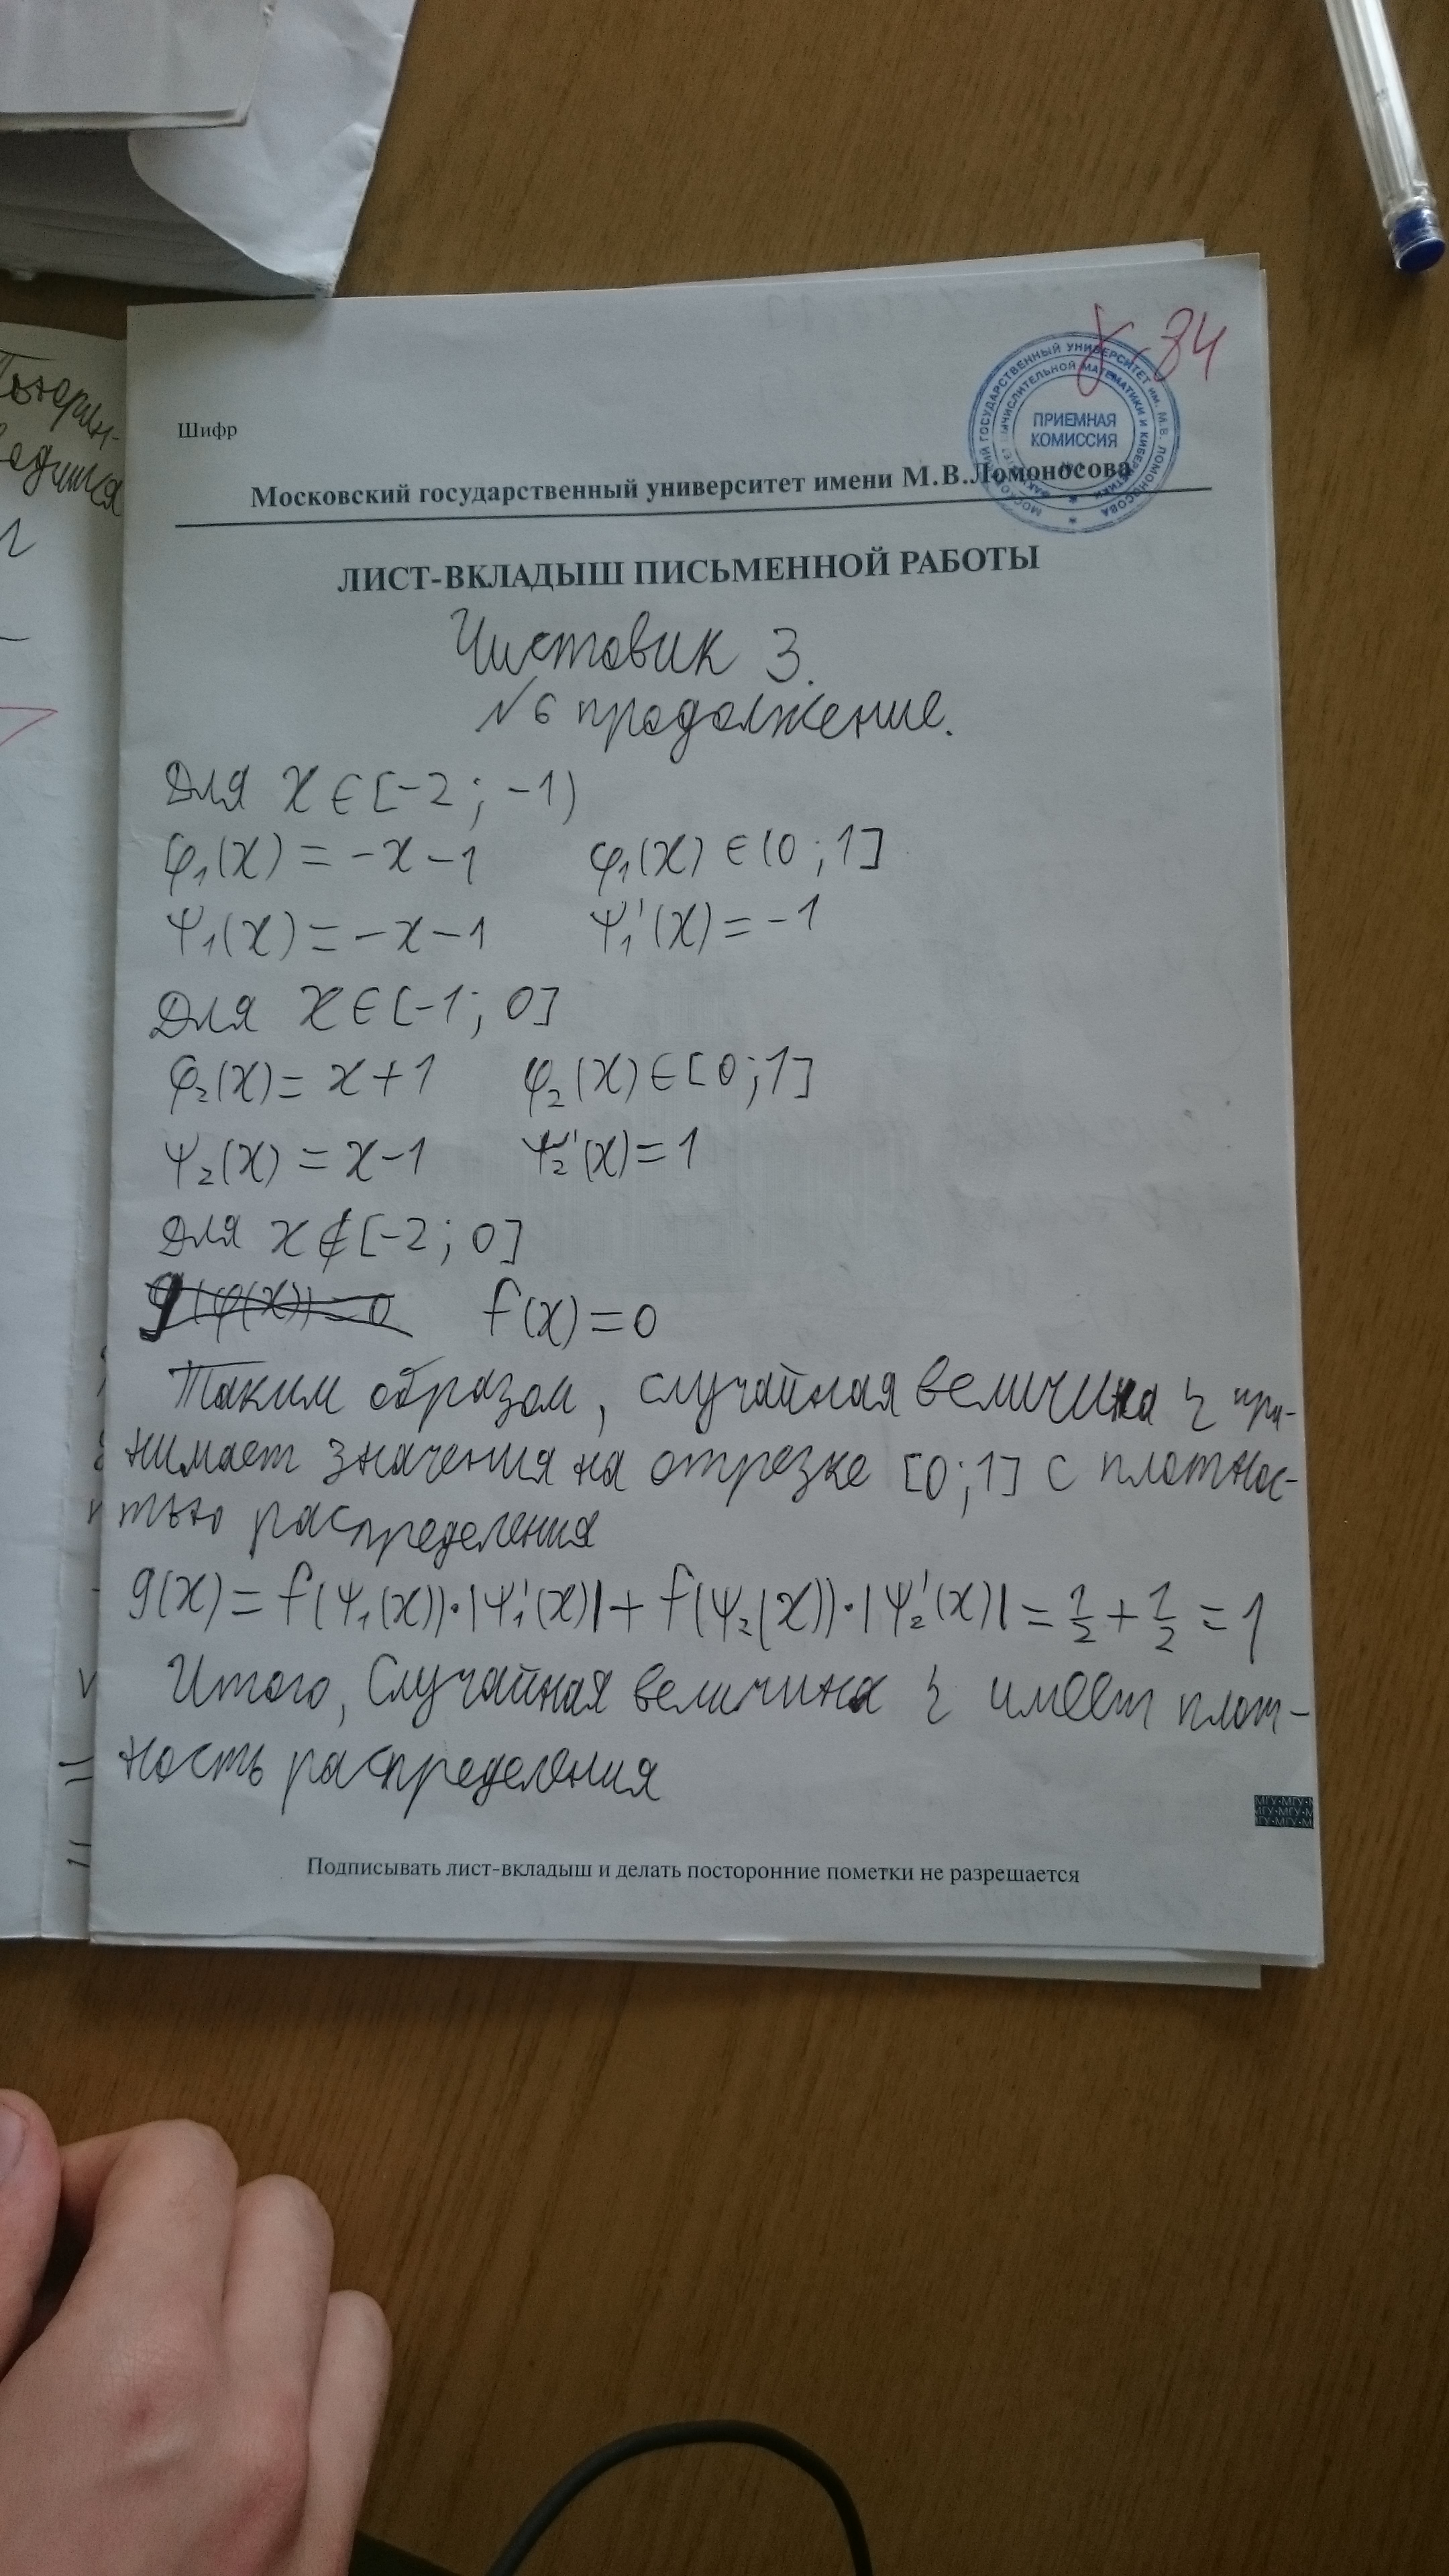 У-34
МОСКОВСКИЙ ГОСУДАРСТВЕННЫЙ УНИВЕРСИТЕТ ИМ. М.В. ЛОМОНОСОВА
ВЫЧИСЛИТЕЛЬНОЙ МАТЕМАТИКИ И КИБЕРНЕТИКИ
ПРИЕМНАЯ
КОМИССИЯ
Шифр
Московский государственный университет имени М.В.Ломоносова
ЛИСТ-ВКЛАДЫШ ПИСЬМЕННОЙ РАБОТЫ
Чистовик 3.
№6 продолжение.
Для x ∈ [-2; -1)
φ₁(x) = -x-1 φ₁(x) ∈ (0; 1]
ψ₁(x) = -x-1 ψ₁'(x) = -1
Для x ∈ [-1; 0]
φ₂(x) = x+1 φ₂(x) ∈ [0; 1]
ψ₂(x) = x-1 ψ₂'(x) = 1
Для x ∉ [-2; 0]
g(φ(x)) = 0 f(x) = 0
Таким образом, случайная величина ξ при-
нимает значения на отрезке [0; 1] с плотнос-
тью распределения
g(x) = f(ψ₁(x))·|ψ₁'(x)| + f(ψ₂(x))·|ψ₂'(x)| = 1/2 + 1/2 = 1
Итого, случайная величина ξ имеет плот-
ность распределения
Подписывать лист-вкладыш и делать посторонние пометки не разрешается